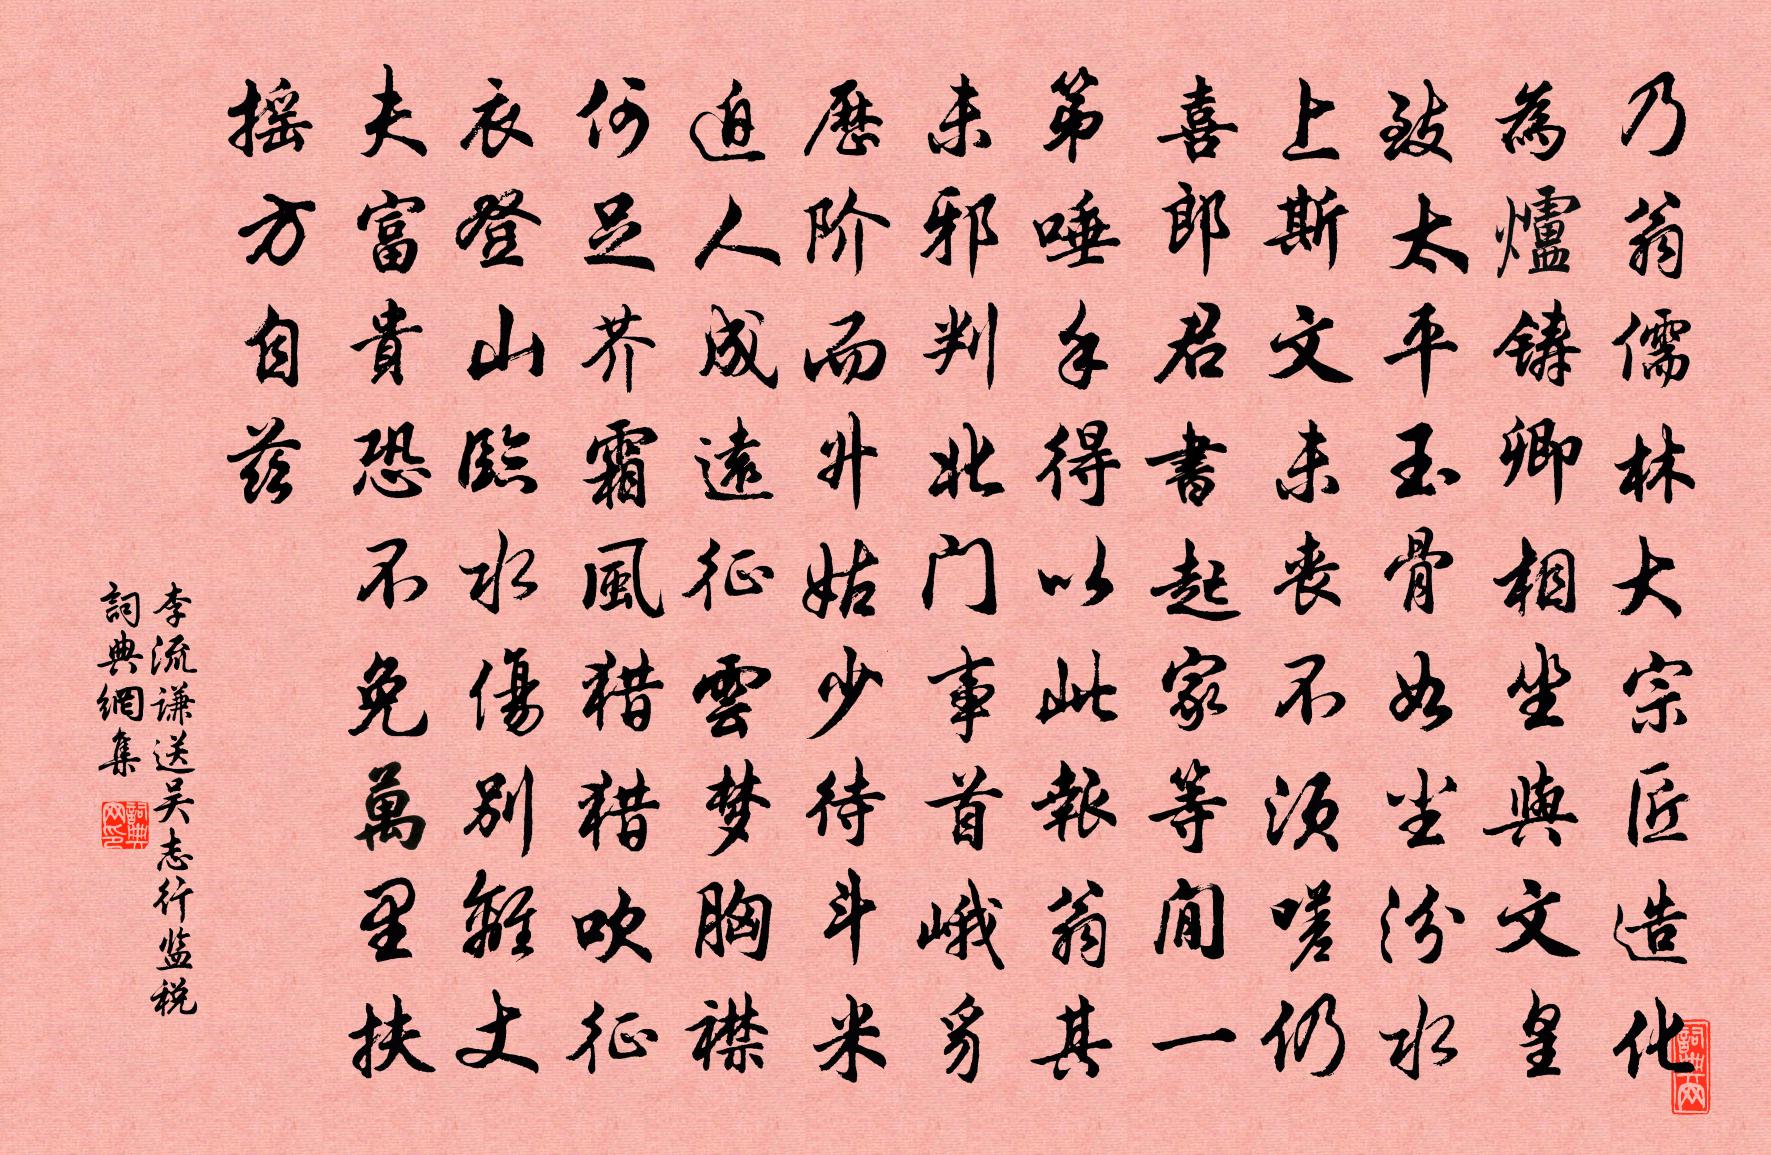 乃翁儒林大宗匠造化
為爐鑄卿相坐與文皇
致太平玉骨如坐汾水
上斯文未丧不须嗟仍
喜郎君書起家等閒一
第唾手得以此報翁其
未邪判北门事首峨豸
歷阶而升姑少待斗米
迫人成遠征雲梦胸襟
何足芥霜風猎猎吹征
衣登山臨水傷别離丈
夫富貴恐不免萬里扶
摇方自兹
李流谦送吴志行监税
詞典網集
詞典网